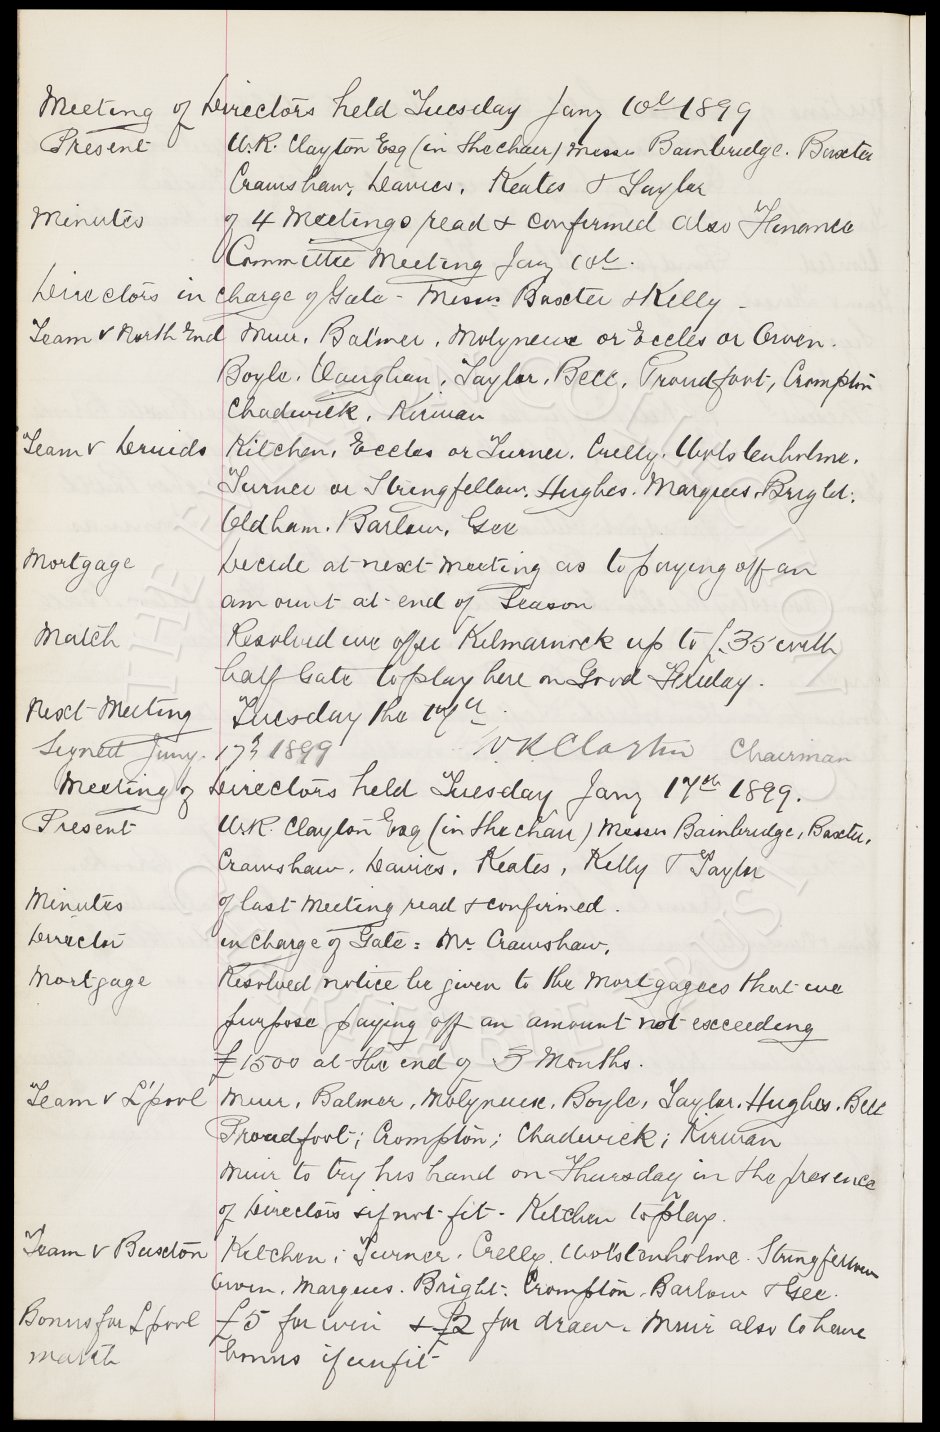 Meeting of Directors held Tuesday Jany 10th 1899
Present W.R. Clayton Esq (in the chair) Messrs Bainbridge. Baxter
Crawshaw, Davies, Keates & Taylor
Minutes of 4 Meetings read & confirmed also Finance
Committee Meeting Jany 10th.
Directors in charge of Gate - Messrs Baxter & Kelly -
Team v North End Muir, Balmer, Molyneux or Eccles or Owen.
Boyle, Vaughan, Taylor, Bell, Proudfoot, Crompton
Chadwick, Kirwan
Team v Druids Kitchen, Eccles or Turner, Crelly, Wolstenholme.
Turner or Stringfellow, Hughes. Marques, Bright.
Oldham. Barlow, Gee
Mortgage Decide at next meeting as to paying off an
amount at end of Season
Match Resolved we offer Kilmarnock up to £35 with
half Gate to play here on Good Friday.
Next Meeting Tuesday the 17th.
Signed Jany. 17th 1899 W.R. Clayton Chairman
Meeting of Directors held Tuesday Jany 17th 1899.
Present W.R. Clayton Esq (in the chair) Messrs Bainbridge, Baxter,
Crawshaw. Davies. Keates, Kelly & Taylor
Minutes of last meeting read & confirmed.
Director in charge of Gate = Mr. Crawshaw.
Mortgage Resolved notice be given to the Mortgagees that we
purpose paying off an amount not exceeding
£1500 at the end of 3 Months.
Team v L'pool Muir, Balmer, Molyneux. Boyle, Taylor. Hughes. Bell
Proudfoot; Crompton; Chadwick; Kirwan
Muir to try his hand on Thursday in the presence
of Directors & if not fit - Kitchen to play.
Team v Buxton Kitchen; Turner. Crelly. Wolstenholme. Stringfellow
Owen. Marques. Bright. Crompton. Barlow & Gee.
Bonus for L'pool £5 for win & £2 for draw. Muir also to have
match bonus if unfit
THE EVERTON COLLECTION
CHARITABLE TRUST